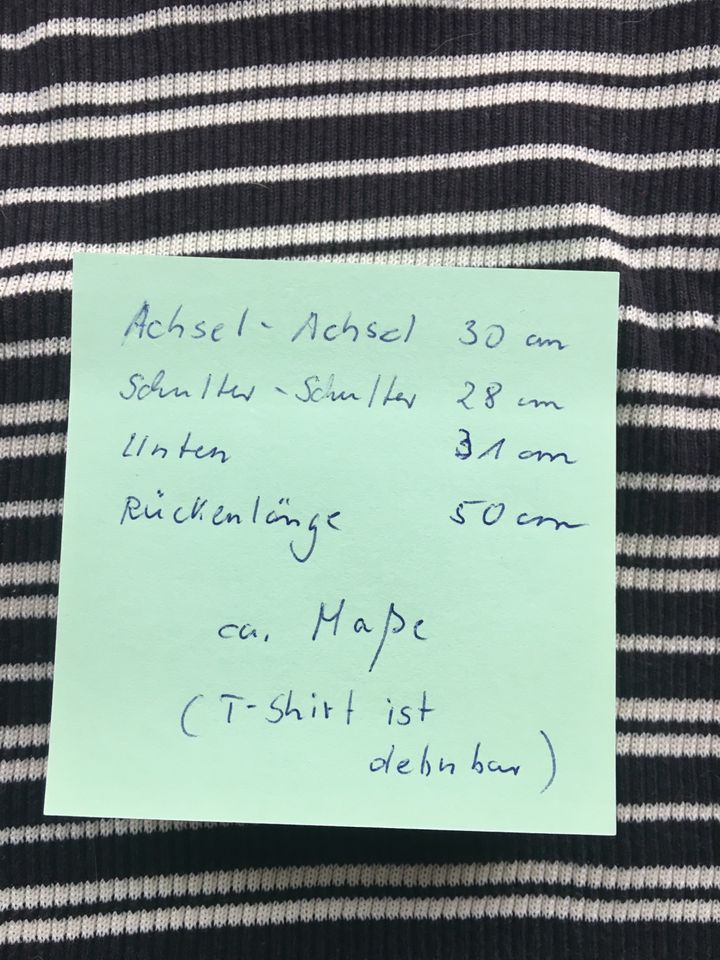 Achsel - Achsel 30 cm
Schulter - Schulter 28 cm
Unten 31 cm
Rückenlänge 50 cm
ca. Maße
(T-Shirt ist
dehnbar)